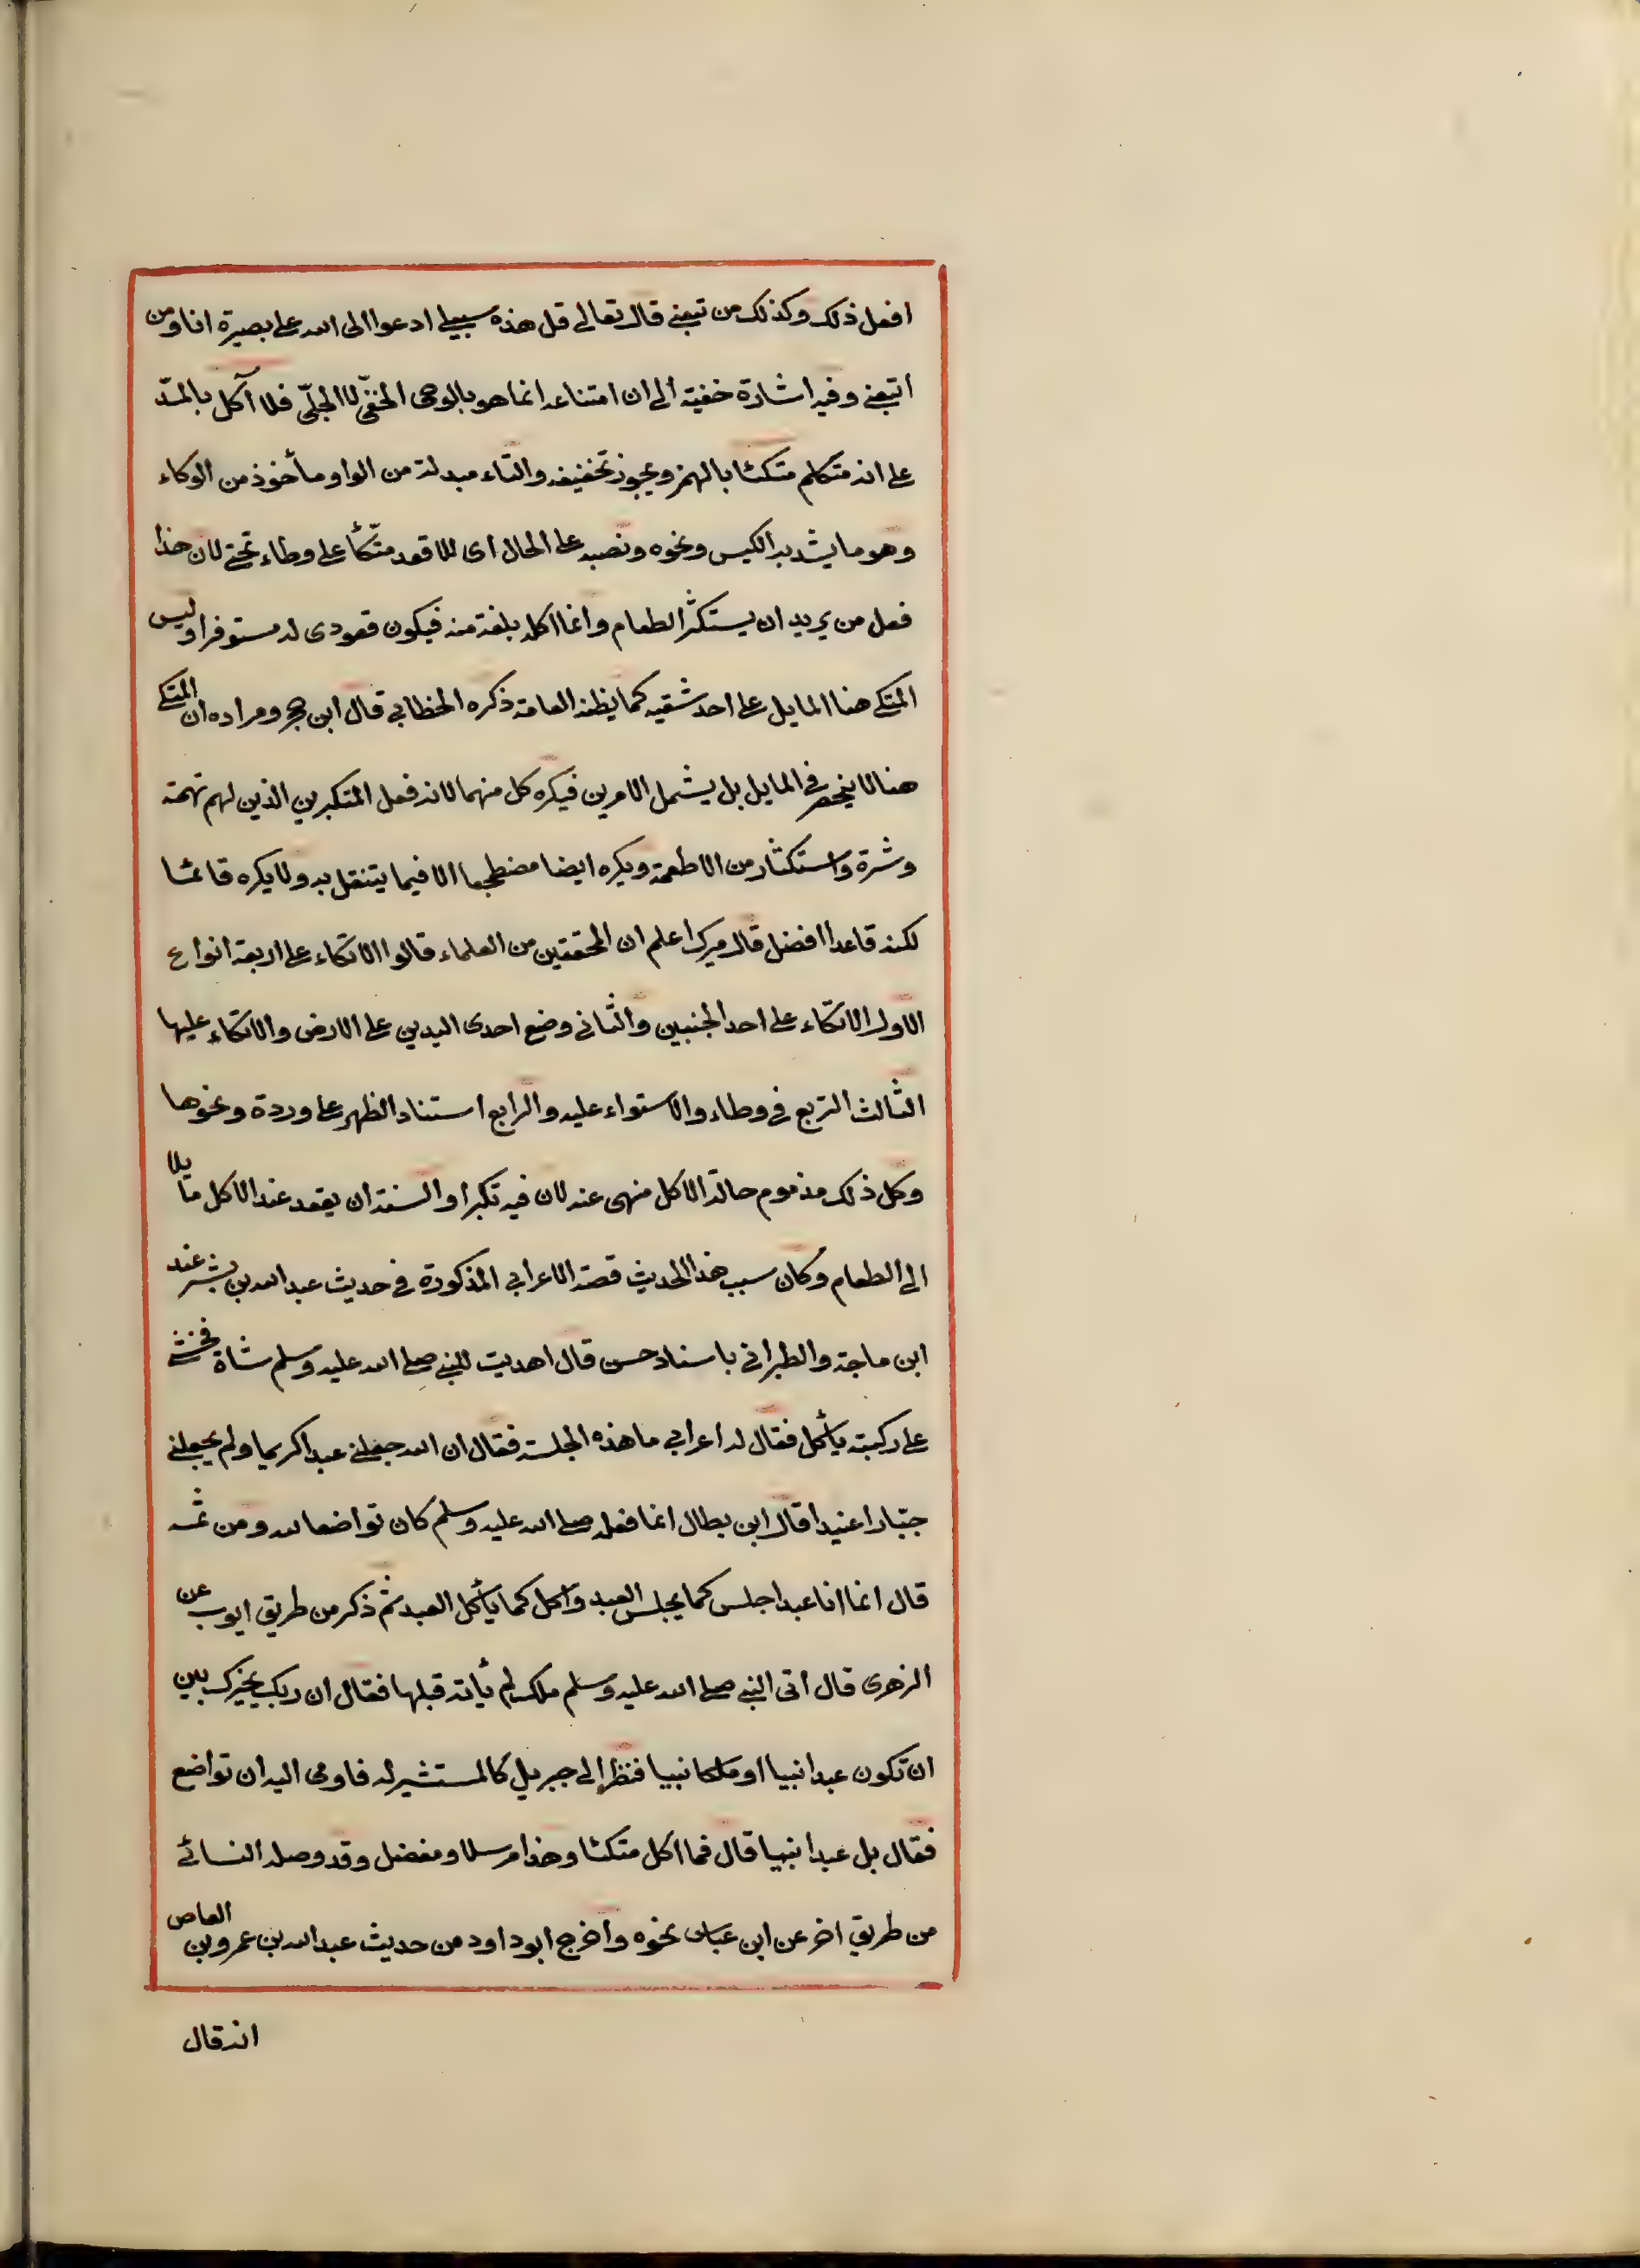 افعل ذلك وكذلك من تبعني قال تعالى قل هذه سبيلي ادعوا الى الله على بصيرة انا ومن
اتبعني وفيه اشارة خفية الى ان امتناعه انما هو بالوحى الخفىّ لا الجلىّ فلا آكل بالمدّ
على انه متكلم متكئا بالهمز ويجوز تخفيفه والتاء مبدلة من الواو مأخوذ من الوكاء
وهو ما يشد به الكيس ونحوه ونصبه على الحال اى لا اقعد متّكأ على وطاء تحتي لان هذا
فعل من يريد ان يستكثر الطعام وانما اكله بلغة منه فيكون قعودى له مستوفزا وليس
المتكى هنا المايل على احد شقيه كما يظنه العامة ذكره الخطابي قال ابن حجر ومراده ان المتكى
هنا لا ينحصر في المايل بل يشمل الامرين فيكره كل منهما لانه فعل المتكبرين الذين لهم نهمة
وشرة واستكثار من الاطعمة ويكره ايضا مضطجعا الا فيما يتنقل به ولا يكره قائما
لكنه قاعدا افضل قال ميرك اعلم ان المحققين من العلماء قالوا الاتكاء على اربعة انواع
الاول الاتكاء على احد الجنبين والثاني وضع احدى اليدين على الارض والاتكاء عليها
الثالث التربع في وطاء والاستواء عليه والرابع استناد الظهر على وردة ونحوها
وكل ذلك مذموم حالة الاكل منهى عنه لان فيه تكبرا والسنة ان يقعد عند الاكل مايلا
الى الطعام وكان سبب هذا الحديث قصة الاعرابي المذكورة في حديث عبد الله بن بشر عند
ابن ماجة والطبراني باسناد حسن قال اهديت للنبي صلى الله عليه وسلم شاة فجثى
على ركبته يأكل فقال له اعرابي ما هذه الجلسة فقال ان الله جعلني عبدا كريما ولم يجعلني
جبّارا عنيدا قال ابن بطال انما فعله صلى الله عليه وسلم كان تواضعا لله ومن ثمه
قال انما انا عبد اجلس كما يجلس العبد واكل كما يأكل العبد ثم ذكر من طريق ايوب عن
الزهرى قال اتى النبي صلى الله عليه وسلم ملك لم يأته قبلها فقال ان ربك يخيرك بين
ان تكون عبدا نبيا او ملكا نبيا فنظر الى جبريل كالمستشير له فاومى اليه ان تواضع
فقال بل عبدا نبيا قال فما اكل متكئا وهذا مرسل او معضل وقد وصله النسائي
من طريق اخر عن ابن عباس نحوه واخرج ابو داود من حديث عبد الله بن عمرو بن العاص
انه قال